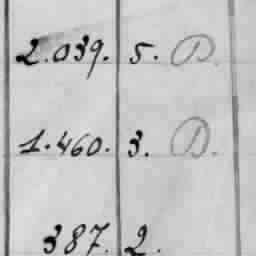 2.039. 5. D.
1.460. 3. D.
387. 2.